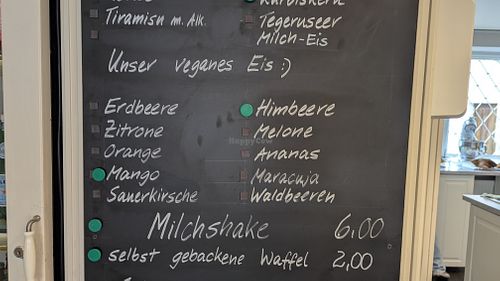 Tiramisu m. Alk.
Kürbiskern
Tegernseer
Milch-Eis
Unser veganes Eis :)
Erdbeere
Himbeere
Zitrone
Melone
Orange
Ananas
Mango
Maracuja
Sauerkirsche
Waldbeeren
Milchshake 6,00
selbst gebackene Waffel 2,00
HappyCow